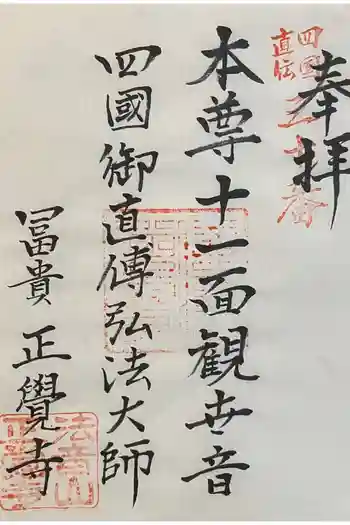 奉拝
四国
直伝
本尊十一面観世音
四國御直傳弘法大師
冨貴 正覺寺